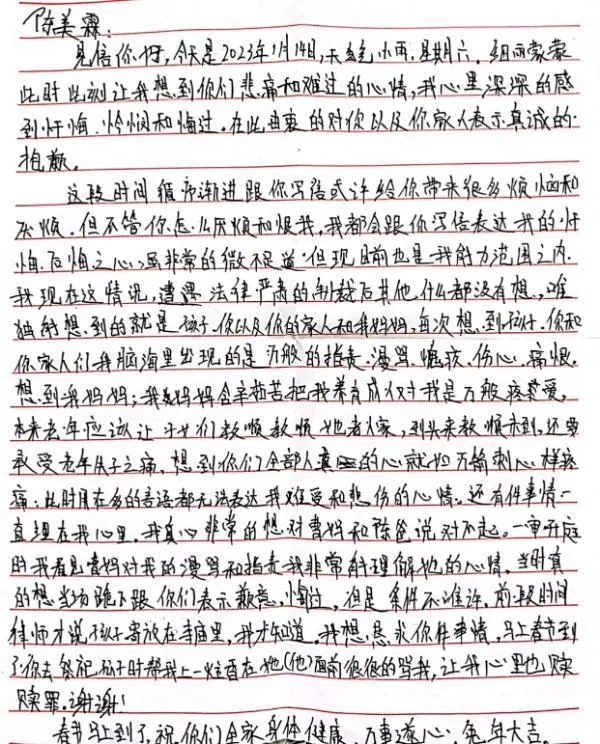 陈美霖:
见信你好,今天是2023年1月14日,天气小雨,星期六,细雨蒙蒙
此时此刻让我想到你们悲痛和难过的心情,我心里深深的感
到忏悔、怜悯和悔过。在此由衷的对你以及你家人表示真诚的
抱歉。
这段时间循序渐进跟你写信或许给你带来很多烦恼和
灰烦。但不管你怎么厌烦和恨我,我都会跟你写信表达我的忏
悔、后悔之心,虽非常的微不足道,但现目前也是我能力范围之内。
我现在这情况,遭遇法律严肃的制裁后其他什么都没有想,唯
独的想到的就是孩子、你以及你的家人和我妈妈,每次想到孩子、你和
你家人们我脑海里出现的是万般的指责、漫骂、恼疚、伤心、痛恨。
想到我妈妈;我妈妈含辛茹苦把我养育成人对我是万般疼爱,
本来老年应该让子女们孝顺孝顺她老人家,到头来孝顺未到,还要
承受老年失子之痛,想到你们全部人真的心就如万箭刺心样疼
痛;此时用在多的言语都无法表达我难受和悲伤的心情。还有件事情一
直埋在我心里,我真心非常的想对曹妈和陈爸说对不起。一审开庭
时我看见曹妈对我的漫骂和指责我非常能理解她的心情,当时真
的想当场跪下跟你们表示歉意,悔过,但是条件不准许,前段时间
律师才说孩子寄放在寺庙里,我才知道,我想恳求你件事情,马上春节到
了你去祭祀孩子时帮我上一炷香在她(他)面前很很的骂我,让我心里也赎
赎罪。谢谢!
春节马上到了,祝你们全家身体健康、万事遂心、兔年大吉。